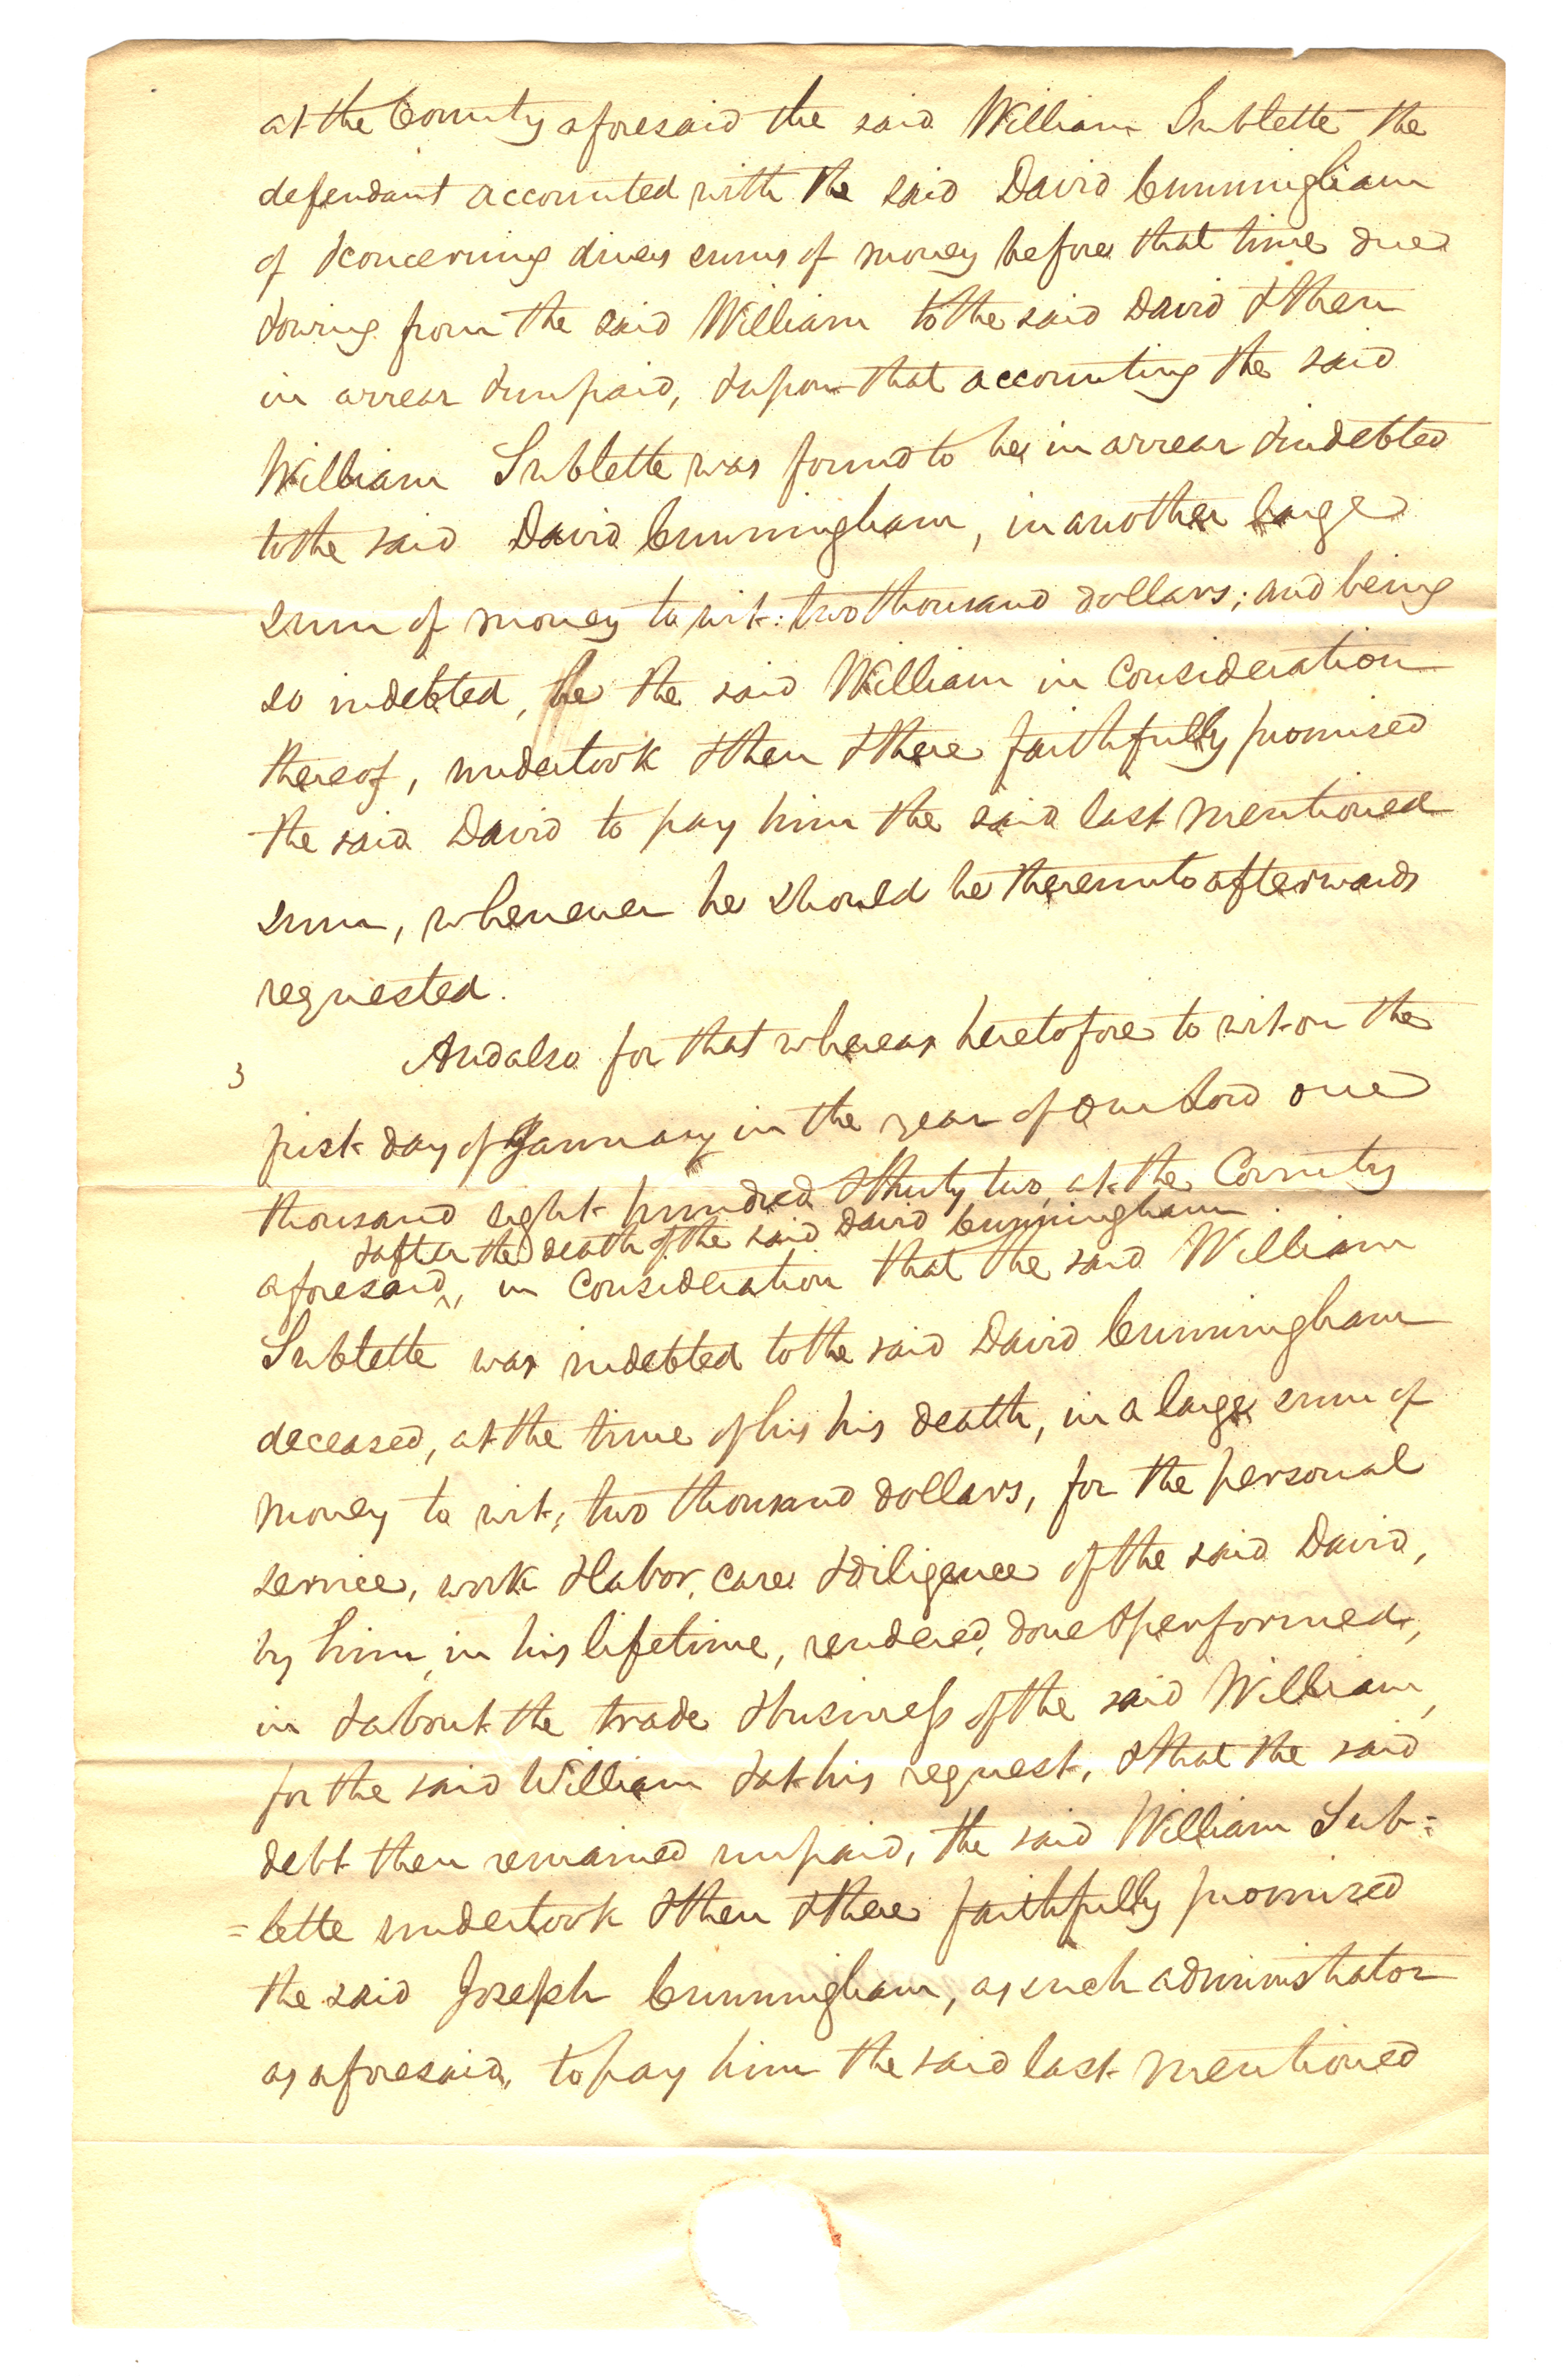 at the County aforesaid the said William Sublette the
defendant accounted with the said David Cunningham
of & concerning divers sums of money before that time due
& owing from the said William to the said David & then
in arrear & unpaid, & upon that accounting the said
William Sublette was found to be in arrear & indebted
to the said David Cunningham, in another large
sum of money to wit: two thousand dollars; and being
so indebted, he the said William in Consideration
thereof, undertook & then & there faithfully promised
the said David to pay him the said last mentioned
sum, whenever he should be thereunto afterwards
requested.
And also for that whereas heretofore to wit on the
3
first day of January in the year of our Lord one
thousand eight hundred & thirty two, at the County
& after the death of the said David Cunningham
aforesaid, in Consideration that the said William
Sublette was indebted to the said David Cunningham
deceased, at the time of his his death, in a large sum of
money to wit; two thousand dollars, for the personal
service, work & labor, care & diligence of the said David,
by him, in his lifetime, rendered, done & performed,
in & about the trade & business of the said William,
for the said William & at his request, & that the said
debt then remained unpaid, the said William Sub=
=lette undertook & then & there faithfully promised
the said Joseph Cunningham, as such administrator
as aforesaid, to pay him the said last mentioned